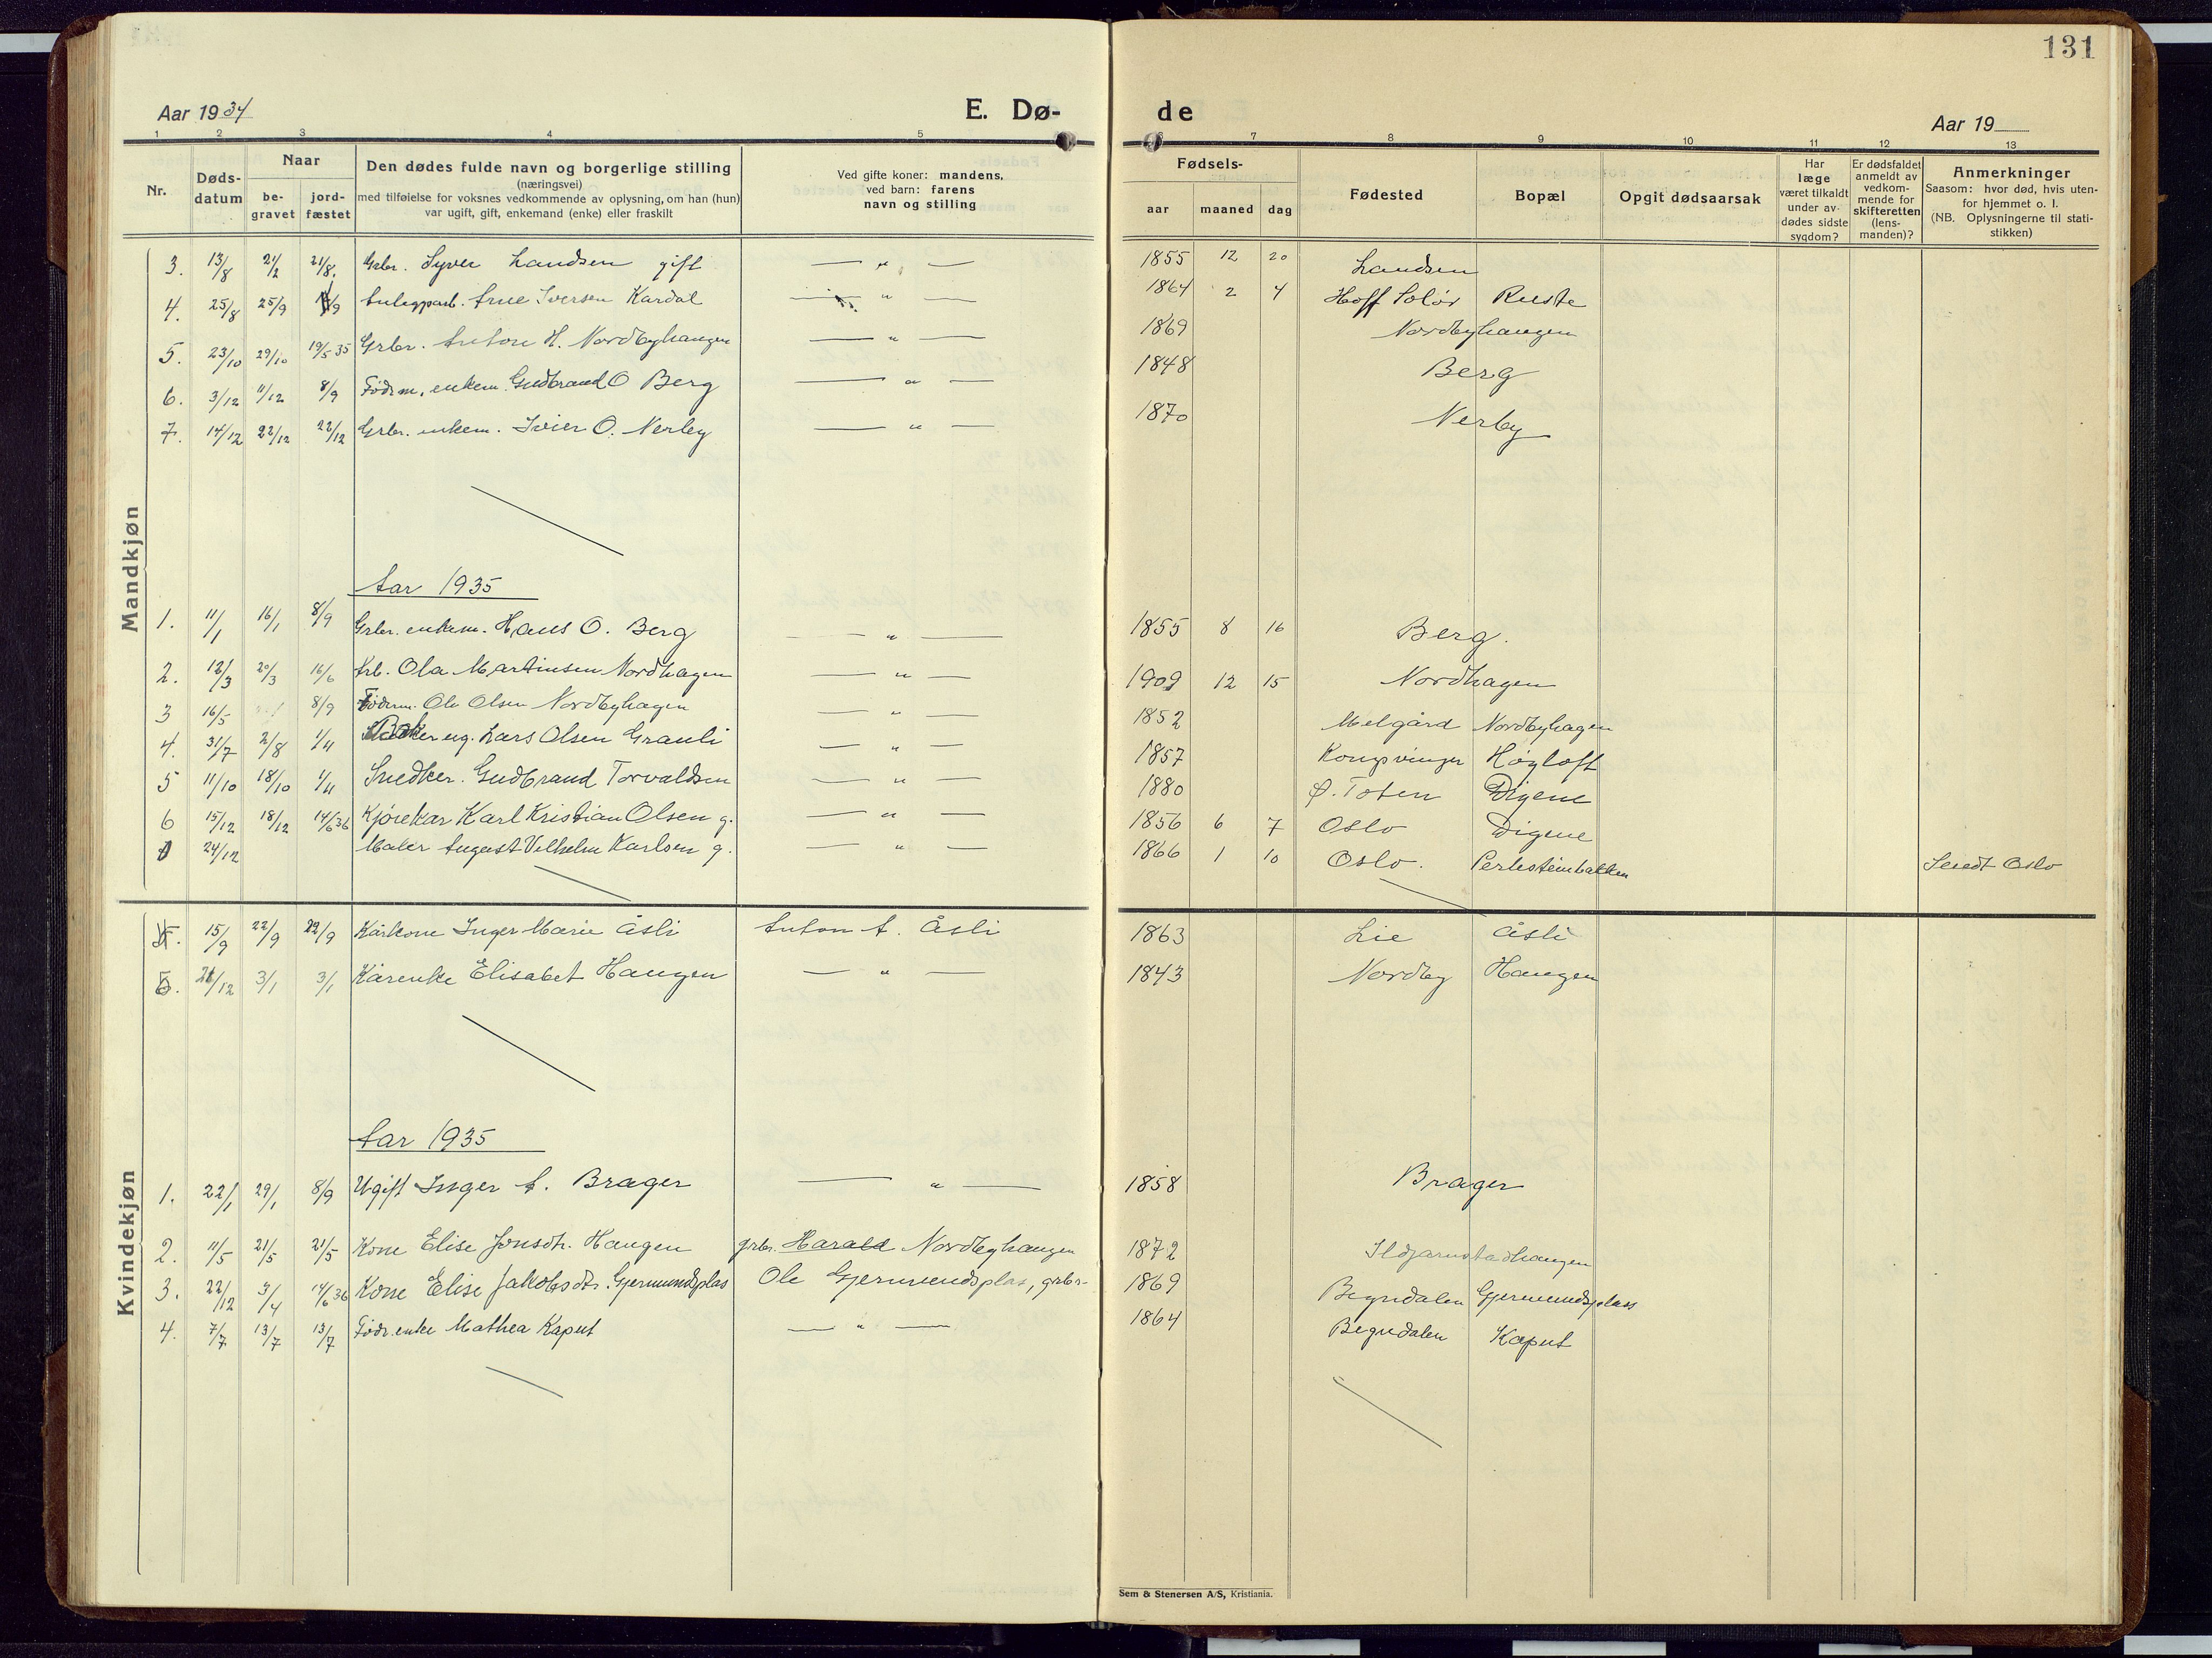 131
Aar 1934 E. Dø- de Aar 19
1 2 3 4 5 6 7 8 9 10 11 12 13
Nr.
Døds-
datum
Naar
be-
gravet
jord-
fæstet
Den dødes fulde navn og borgerlige stilling
(næringsvei)
med tilføielse for voksnes vedkommende av oplysning, om han (hun)
var ugift, gift, enkemand (enke) eller fraskilt
Ved gifte koner: mandens,
ved barn: farens
navn og stilling
Fødsels-
aar maaned dag
Fødested
Bopæl
Opgit dødsaarsak
Har
læge
været tilkaldt
under av-
dødes sidste
sygdom?
Er dødsfaldet
anmeldt av
vedkom-
mende for
skifteretten
(lens-
manden)?
Anmerkninger
Saasom: hvor død, hvis uten-
for hjemmet o. l.
(NB. Oplysningerne til stati-
stikken)
Mandkjøn
3. 13/8 21/2 21/8. Grbr. Syver Landsen gift — " — 1855 12 20 Landsen
4. 25/8 25/9 /9 Anlegsarb. Arne Iversen Kardal — " — 1864 2 4 Hoff Solør Ruste
5. 23/10 29/10 19/5 35 Grbr. Anton H. Nordbyhaugen — " — 1869 Nordbyhaugen
6. 3/12 11/12 8/9 Fødrm. enkem. Gudbrand O Berg — " — 1848 Berg
7. 14/12 22/12 22/12 Grbr. enkem. Iver O. Nerby — " — 1870 Nerby
Aar 1935
1. 11/1 16/1 8/9 Grbr. enkem. Hans O. Berg — " — 1855 8 16 Berg.
2. 12/3 20/3 16/6 Arb. Ola Martinsen Nordhagen — " — 1909 12 15 Nordhagen
3 16/5 8/9 Fødrm. Ole Olsen Nordbyhagen — " — 1852 Melgård Nordbyhagen
4. 31/7 2/8 1/4 Baker ug. Lars Olsen Granli — " — 1857 Kongsvinger Högloft
5 11/10 18/10 1/4 Snedker. Gudbrand Torvaldsen — " — 1880 Ø. Toten Digene
6 15/12 18/12 14/6 36 Kjørekar Karl Kristian Olsen g. — " — 1856 6 7 Oslo Digene
24/12 Maler August Vilhelm Karlsen g. — " — 1866 1 10 Oslo. Perlesteinbakken Sendt Oslo
Kvindekjøn
15/9 22/9 22/9 Kårkone Inger Marie Åsli Anton A. Åsli 1863 Lie Åsli
6. 26/12 3/1 3/1 Kårenke Elisabet Haugen — " — 1843 Nordby Haugen
Aar 1935
1. 22/1 29/1 8/9 Ugift Inger A. Brager — " — 1858 Brager
2. 11/5 21/5 21/5 Kone Elise Jonsdtr. Haugen grbr. Harald Nordbyhaugen 1872 Ildjarnstadhaugen
3. 22/12 3/4 14/6 36 Kone Elise Jakobsdtr. Gjermundsplas Ole Gjermundsplas, grbr. 1869 Begndalen Gjermundsplass
4. 7/7 13/7 13/7 Födr.enke Mathea Kaput — " — 1864 Begndalen Kaput
Sem & Stenersen A/S, Kristiania.